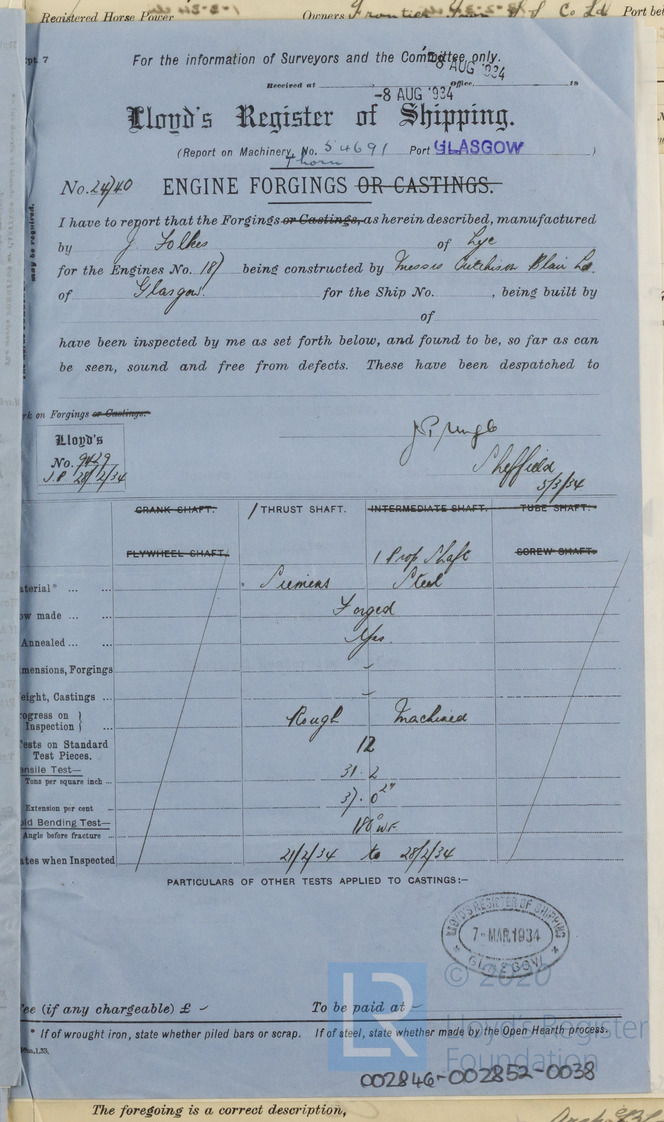 Registered Horse Power Owners Frontier Town S.S. Co Ld Port
pt. 7
For the information of Surveyors and the Committee only.
8 AUG '934
Received at Office, 18
-8 AUG '934
Lloyd's Register of Shipping.
(Report on Machinery, No. 54691 Port GLASGOW )
No. 24/40 ENGINE FORGINGS OR CASTINGS.
I have to report that the Forgings or Castings, as herein described, manufactured
by J. Folkes of Lye
for the Engines No. 187 being constructed by Messrs Aitchison Blair Ld.
of Glasgow. for the Ship No. , being built by
of
have been inspected by me as set forth below, and found to be, so far as can
be seen, sound and free from defects. These have been despatched to
may be required.
rk on Forgings or Castings.
Lloyd's
No. 9429
J.P 28/2/34
J Pringle
Sheffield
5/3/34
CRANK SHAFT. 1 THRUST SHAFT. INTERMEDIATE SHAFT. TUBE SHAFT.
FLYWHEEL SHAFT. 1 Prop Shaft SCREW SHAFT.
aterial* ... ... Siemens Steel
ow made ... ... Forged
Annealed ... ... Yes.
mensions, Forgings
eight, Castings ...
ogress on } Inspection } ... Rough Machined
ests on Standard Test Pieces. 12
ensile Test—
Tons per square inch ... 31.2
Extension per cent 37.0 2"
ld Bending Test—
Angle before fracture 180° W.F.
ates when Inspected 21/2/34 to 28/2/34
PARTICULARS OF OTHER TESTS APPLIED TO CASTINGS:—
LLOYD'S REGISTER OF SHIPPING
7-MAR.1934
GLASGOW
© 2020
ee (if any chargeable) £ To be paid at
LR
Lloyd's Register
Foundation
* If of wrought iron, state whether piled bars or scrap. If of steel, state whether made by the Open Hearth process.
002846-002852-0038
The foregoing is a correct description,